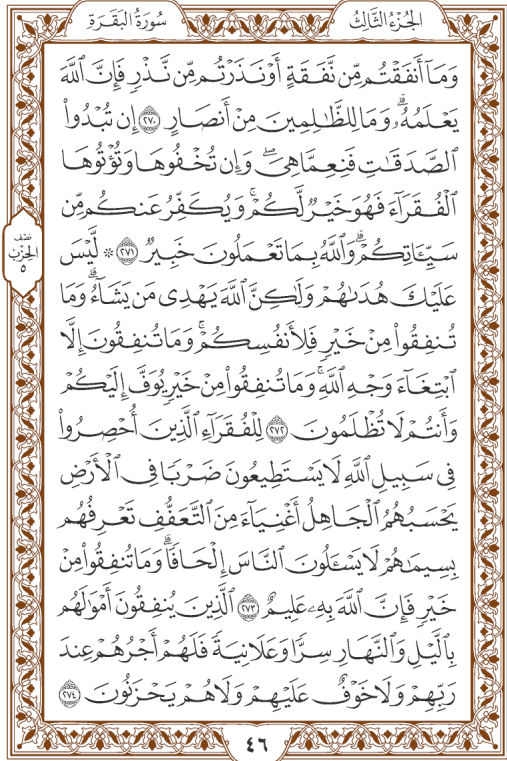 الجُزْءُ الثَّالِثُ
سُورَةُ البَقَرَةِ
وَمَآ أَنفَقْتُم مِّن نَّفَقَةٍ أَوْ نَذَرْتُم مِّن نَّذْرٍ فَإِنَّ ٱللَّهَ
يَعْلَمُهُۥۗ وَمَا لِلظَّـٰلِمِينَ مِنْ أَنصَارٍ ٢٧٠ إِن تُبْدُوا۟
ٱلصَّدَقَـٰتِ فَنِعِمَّا هِىَۖ وَإِن تُخْفُوهَا وَتُؤْتُوهَا
ٱلْفُقَرَآءَ فَهُوَ خَيْرٌ لَّكُمْۚ وَيُكَفِّرُ عَنكُم مِّن
سَيِّـَٔاتِكُمْۗ وَٱللَّهُ بِمَا تَعْمَلُونَ خَبِيرٌ ٢٧١ ۞ لَّيْسَ
عَلَيْكَ هُدَىٰهُمْ وَلَـٰكِنَّ ٱللَّهَ يَهْدِى مَن يَشَآءُۗ وَمَا
تُنفِقُوا۟ مِنْ خَيْرٍ فَلِأَنفُسِكُمْۚ وَمَا تُنفِقُونَ إِلَّا
ٱبْتِغَآءَ وَجْهِ ٱللَّهِۚ وَمَا تُنفِقُوا۟ مِنْ خَيْرٍ يُوَفَّ إِلَيْكُمْ
وَأَنتُمْ لَا تُظْلَمُونَ ٢٧٢ لِلْفُقَرَآءِ ٱلَّذِينَ أُحْصِرُوا۟
فِى سَبِيلِ ٱللَّهِ لَا يَسْتَطِيعُونَ ضَرْبًا فِى ٱلْأَرْضِ
يَحْسَبُهُمُ ٱلْجَاهِلُ أَغْنِيَآءَ مِنَ ٱلتَّعَفُّفِ تَعْرِفُهُم
بِسِيمَـٰهُمْ لَا يَسْـَٔلُونَ ٱلنَّاسَ إِلْحَافًاۗ وَمَا تُنفِقُوا۟ مِنْ
خَيْرٍ فَإِنَّ ٱللَّهَ بِهِۦ عَلِيمٌ ٢٧٣ ٱلَّذِينَ يُنفِقُونَ أَمْوَٰلَهُم
بِٱلَّيْلِ وَٱلنَّهَارِ سِرًّا وَعَلَانِيَةً فَلَهُمْ أَجْرُهُمْ عِندَ
رَبِّهِمْ وَلَا خَوْفٌ عَلَيْهِمْ وَلَا هُمْ يَحْزَنُونَ ٢٧٤
نِصْف
الحِزْب
٥
٤٦